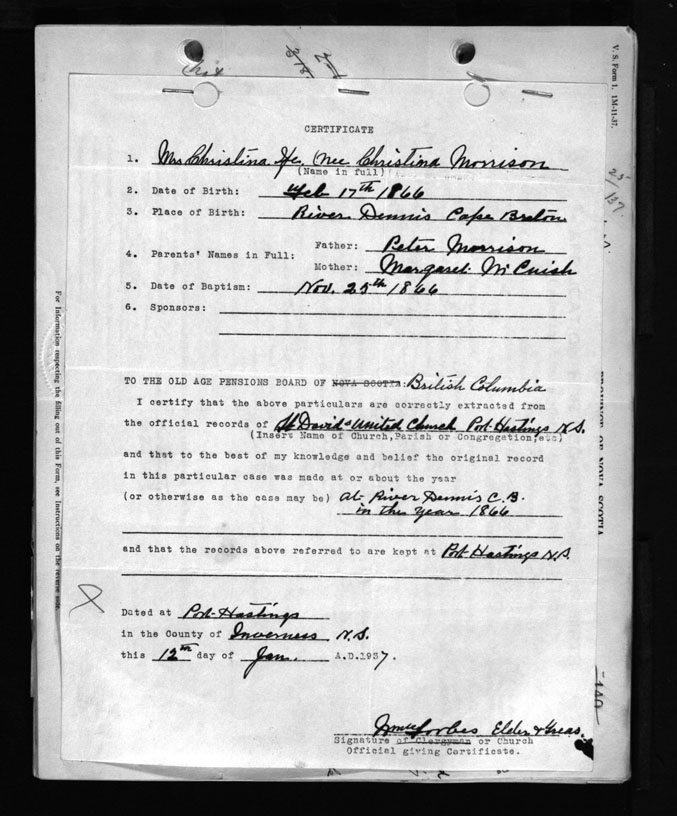 V. S. Form 1. 1M-11-37.
25/137
CERTIFICATE
1. Mrs Christina (nee Christina Morrison
(Name in full)
2. Date of Birth: Feb 17th 1866
3. Place of Birth: River Dennis Cape Breton
4. Parents' Names in Full:
Father: Peter Morrison
Mother: Margaret McCuish
5. Date of Baptism: Nov. 25th 1866
6. Sponsors:
TO THE OLD AGE PENSIONS BOARD OF NOVA SCOTIA: British Columbia
I certify that the above particulars are correctly extracted from
the official records of St Davids United Church Port Hastings N.S.
(Insert Name of Church, Parish or Congregation, etc)
and that to the best of my knowledge and belief the original record
in this particular case was made at or about the year
(or otherwise as the case may be) at River Dennis C.B.
in the year 1866
and that the records above referred to are kept at Port Hastings N.S.
Dated at Port Hastings
in the County of Inverness N.S.
this 12th day of Jan. A.D. 1937.
Forbes Elder & Treas.
Signature of Clergyman or Church
Official giving Certificate.
For Information respecting the filling out of this Form, see Instructions on the reverse side.
OF NOVA SCOTIA